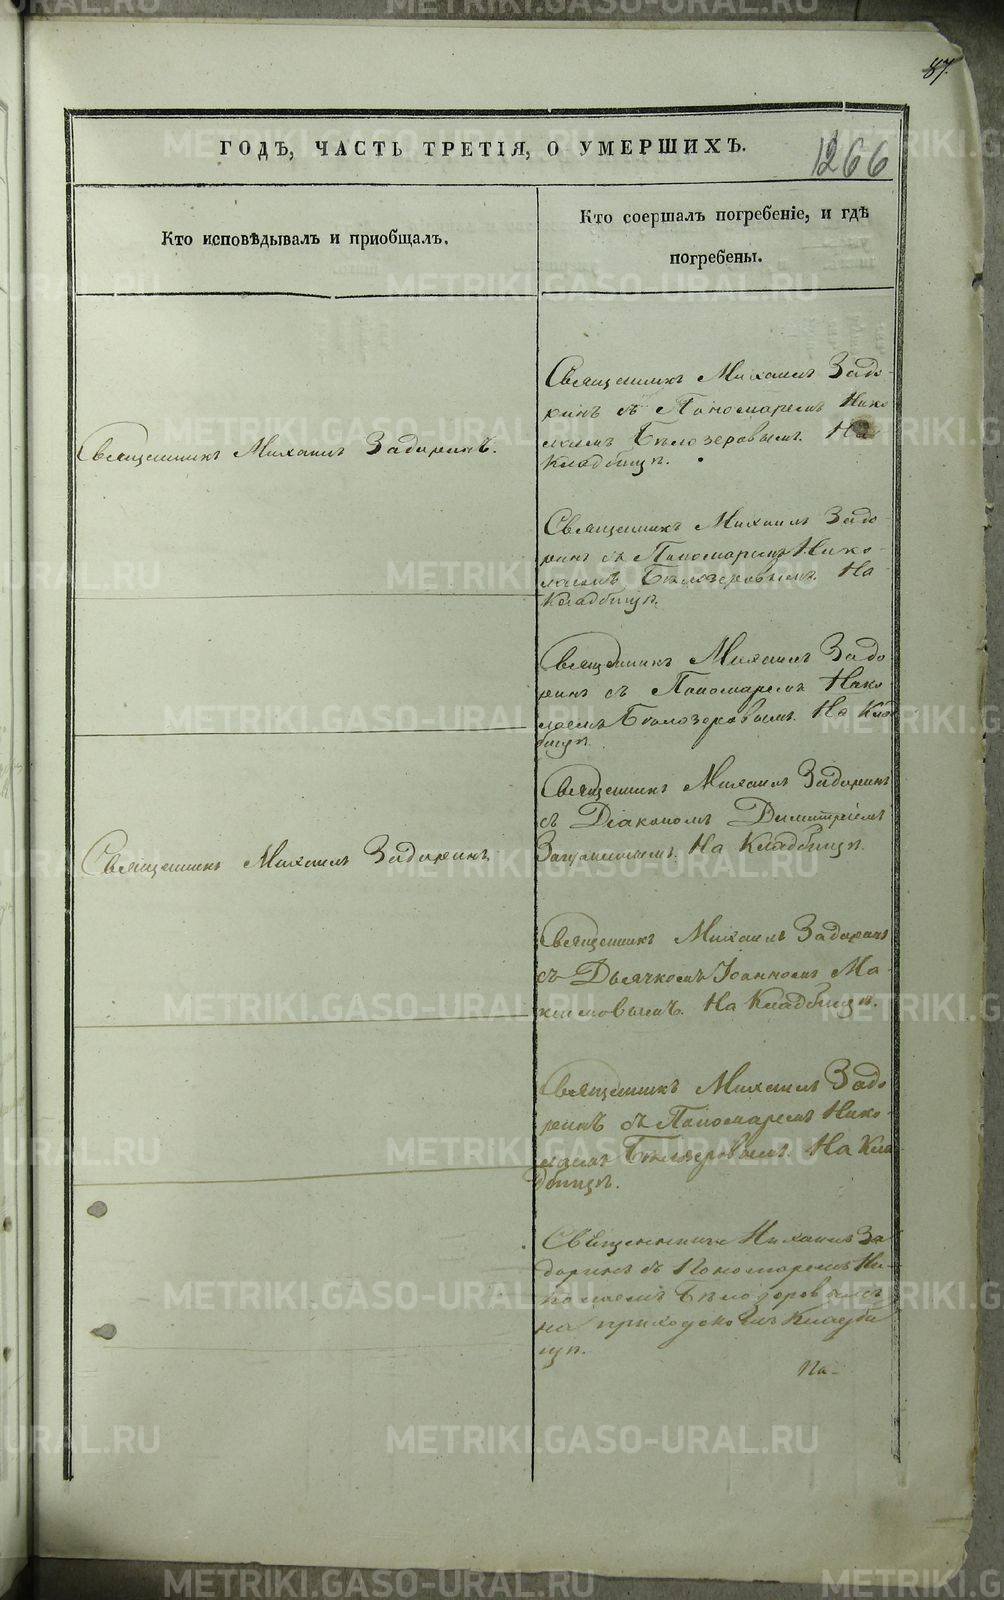 87.
ГОДЪ, ЧАСТЬ ТРЕТІЯ, О УМЕРШИХЪ.
1266
Кто исповѣдывалъ и приобщалъ.
Кто соершалъ погребеніе, и гдѣ
погребены.
Священникъ Михаилъ Задоринъ.
Священникъ Михаилъ Задо-
ринъ съ Пономаремъ Нико
лаемъ Бѣлозеровымъ. На
Кладбищѣ.
Священникъ Михаилъ Задо-
ринъ съ Пономаремъ Нико-
лаемъ Бѣлозеровымъ. На
Кладбищѣ.
Священникъ Михаилъ Задо
ринъ съ Пономаремъ Нико
лаемъ Бѣлозеровымъ. На Клад
бищѣ.
Священникъ Михаилъ Задоринъ
Священникъ Михаилъ Задоринъ
съ Діакономъ Димитріемъ
На Кладбищѣ.
Священникъ Михаилъ Задоринъ
съ Дьячкомъ Іоанномъ Ма-
ксимовымъ. На Кладбищѣ.
Священникъ Михаилъ Задо
ринъ съ Пономаремъ Нико-
лаемъ Бѣлозеровымъ. На Кла
дбищѣ.
Священникъ Михаилъ За
доринъ съ Пономаремъ Ни-
колаемъ Бѣлозеровымъ
на приходскомъ Кладби
щѣ.
METRIKI.GASO-URAL.RU